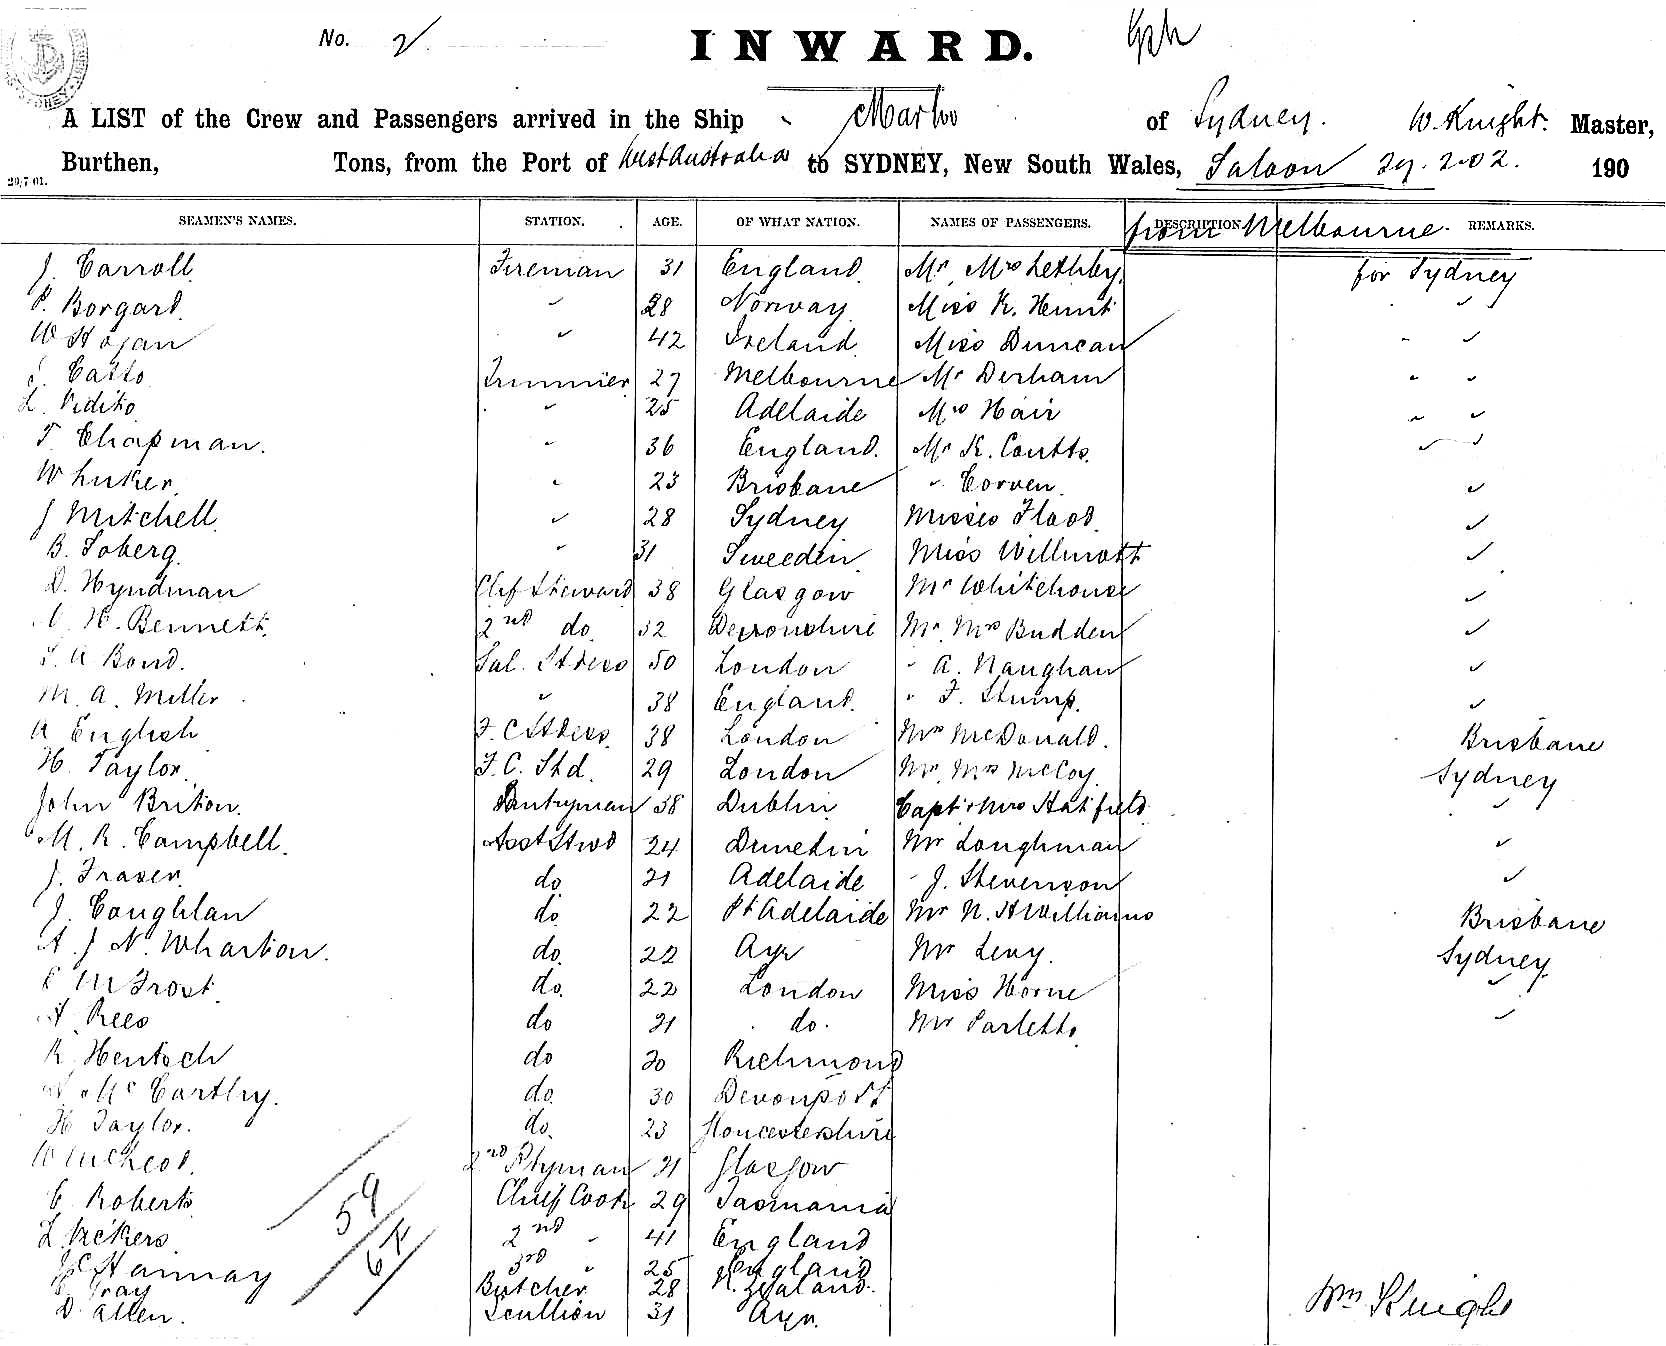 No. 2. INWARD.
A LIST of the Crew and Passengers arrived in the Ship of Sydney. W. Knight. Master,
Burthen, Tons, from the Port of West Australia to SYDNEY, New South Wales, Saloon 29. 2.02. 190
29/7-01.
SEAMEN'S NAMES. STATION. AGE. OF WHAT NATION. NAMES OF PASSENGERS. DESCRIPTION. REMARKS.
from Melbourne.
J. Carroll Fireman 31 England. Mr Mrs Lethby for Sydney
P. Borgard. " 28 Norway Miss K. Hunt "
W Hogan " 42 Ireland. Miss Duncan " "
Catto Trimmer 27 Melbourne Mr Derham " "
L. " 25 Adelaide Mrs Hair " "
T. Chapman. " 36 England. Mr K. Coutts. " "
W " 23 Brisbane " Corven. "
J Mitchell. " 28 Sydney Misses Flood. "
B. Soberg. " 31 Sweeden. Miss Willmott "
D. Hyndman Chf Steward 38 Glasgow Mr Whitehouse "
H. Bennett. 2nd do. 32 Devonshire Mr Mrs Budden "
A Bond. Sal. Stdess 50 London " A. Naughan "
M. A. Miller " 38 England. " F. Stump. "
A English F. C Stdess. 38 London Mrs McDonald. Brisbane
H. Taylor. F. C. Std. 29 London Mr. Mrs McCoy. Sydney
John Briton. Pantryman 38 Dublin. Capt & Mrs Hatfield "
M. R. Campbell. Asst Stwd 24 Dunedin Mr Loughman "
J. Fraser. do 21 Adelaide " J. Stevenson "
J. Coughlan do. 22 Pt Adelaide Mr N. H Williams Brisbane
A. J N. Wharton. do. 22 Ayr Mr Levy. Sydney
M Frost. do. 22 London Miss Horne "
A Rees do 21 do. Mr "
R. Hentsch do 20 Richmond
McCarthy. do. 30 Devonport
H Taylor. do. 23 Gloucestershire
W 2nd Ptyman 21 Glasgow
C. Roberts Chief Cook 29 Tasmania
L. Vickers 2nd " 41 England
Hannay 3rd " 25 England
Gray Butcher 28 N. Zealand.
D. Allen. Scullion 31 Ayr.
59
Wm Knight